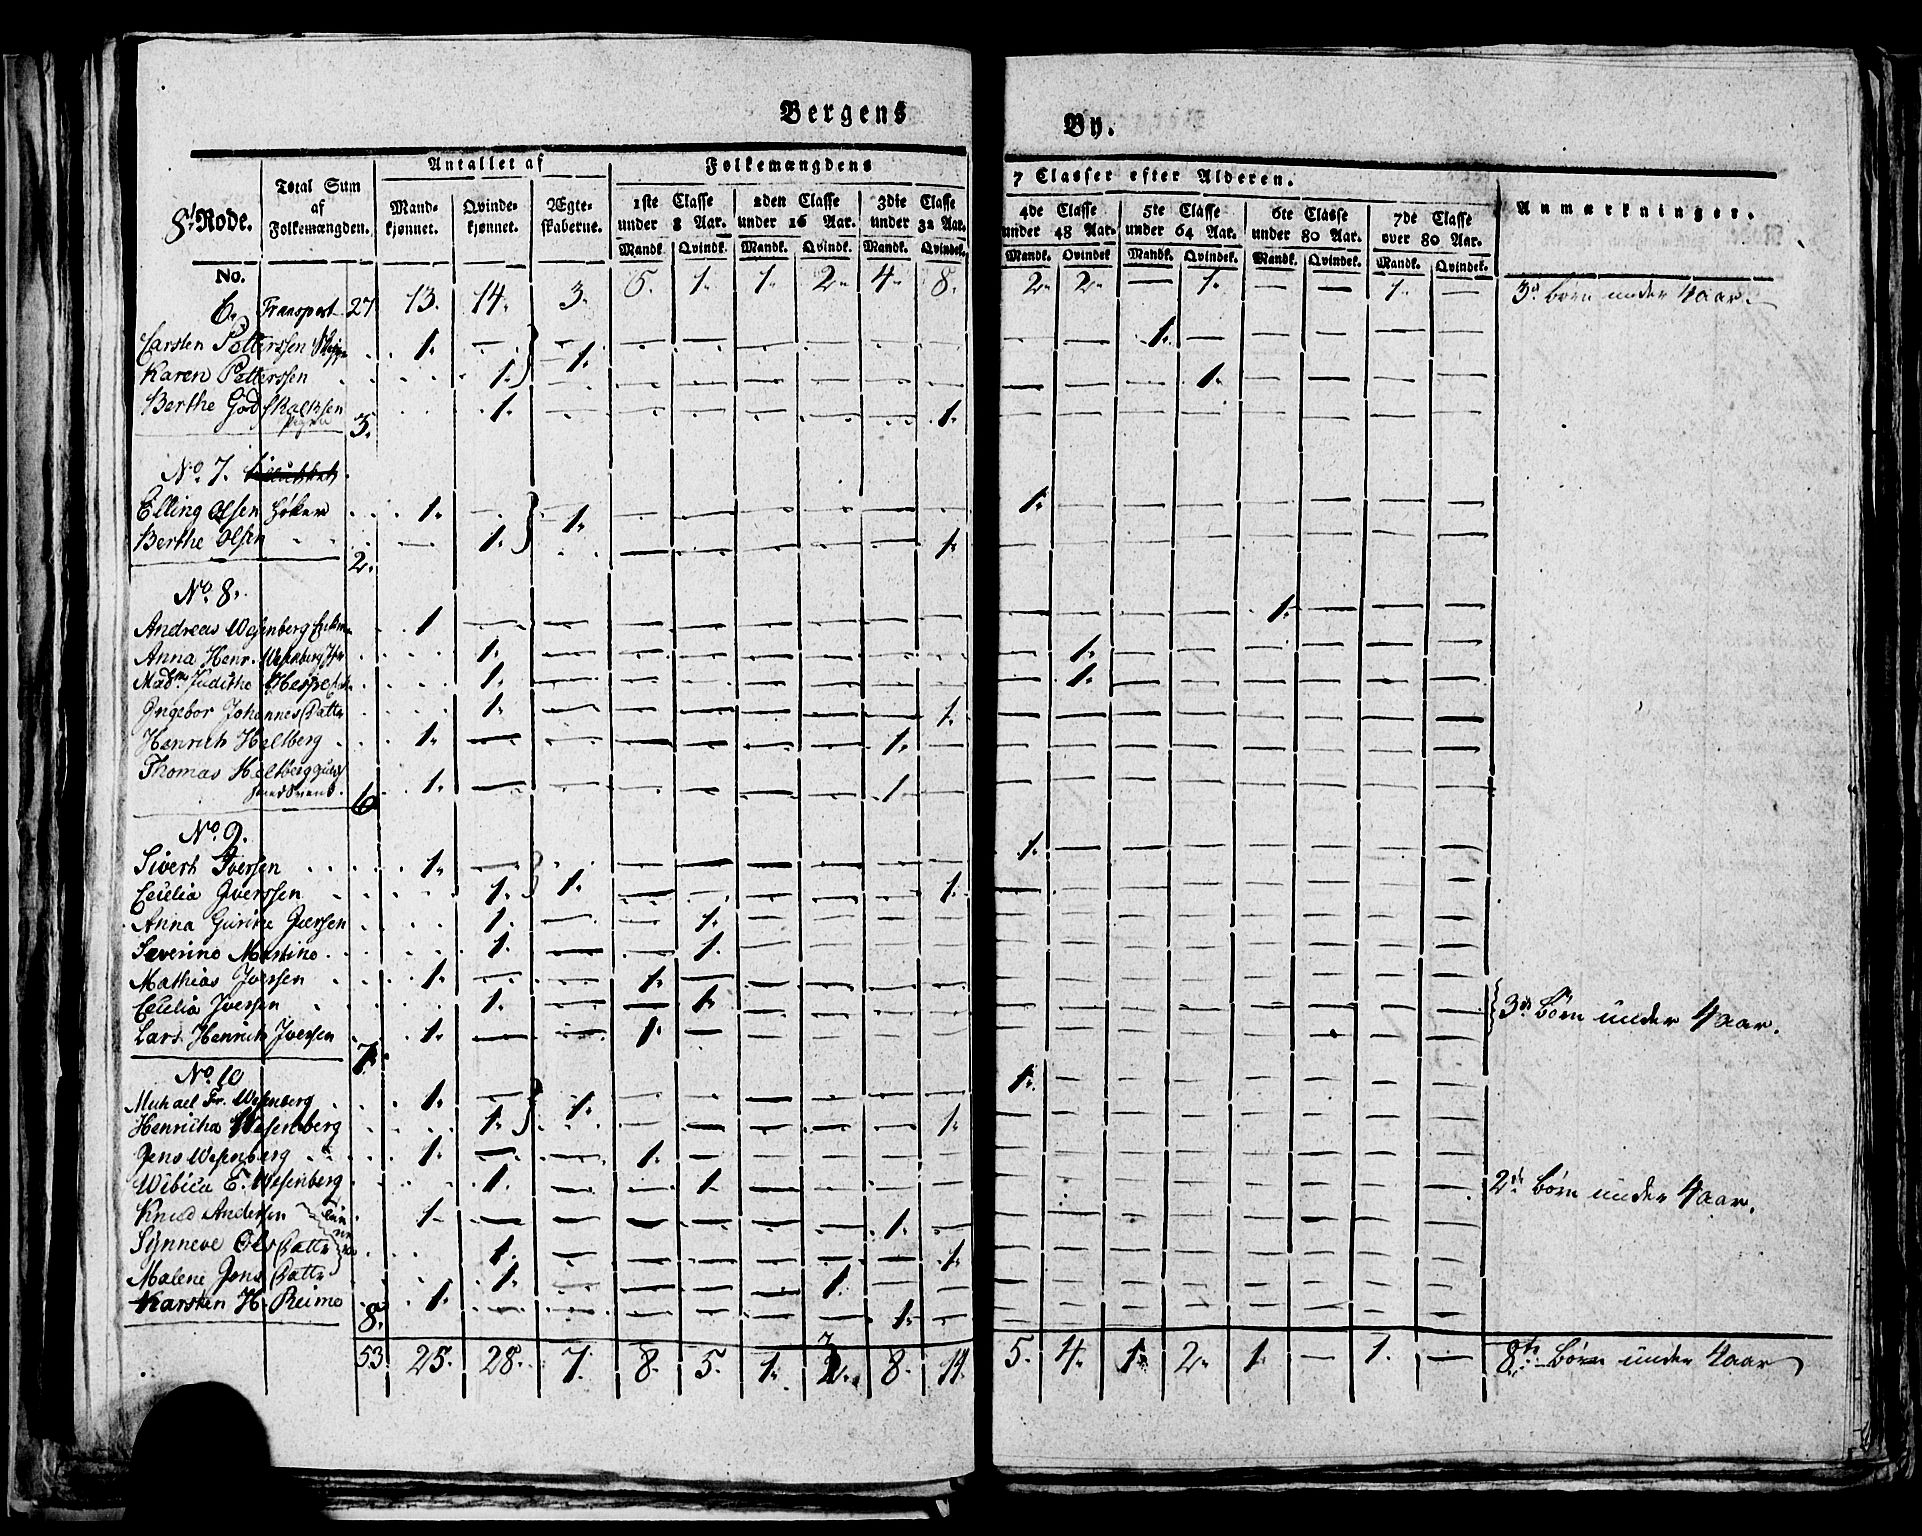 Bergens By.
8de Rode.
Total Sum af Folkemængden.
Antallet af
Mandkjønnet. Qvindekjønnet. Ægteskaberne.
Folkemængdens 7 Classer efter Alderen.
1ste Classe under 8 Aar. 2den Classe under 16 Aar. 3die Classe under 32 Aar. 4de Classe under 48 Aar. 5te Classe under 64 Aar. 6te Classe under 80 Aar. 7de Classe over 80 Aar.
Mandk. Qvindk. Mandk. Qvindk. Mandk. Qvindek. Mandk. Qvindek Mandk. Qvindek. Mandk. Qvindek. Mandk. Qvindek.
Anmærkninger.
No.
6. Transport 27 13. 14. 3. 5. 1. 1. 2. 4. 8. 2. 2. — 1. — — 1. — 3 børn under 4 aar
Carsten Petterssen 1. — 1. — — — — — — — — 1. — — — — —
Karen Petterssen 1. — — — — — — — — — 1. — — — —
Berthe Godskalksen 3. 1. — — — — — — 1. — — — — — — — —
No. 7.
Elling Olsen Høker 1. — 1. — — — — — — 1. — — — — — — —
Berthe Olsen 2. — 1. — — — — — 1. — — — — — — — —
No. 8.
Andreas Wesenberg 1 — — — — — — — — — — — — 1. — — —
Anna Henr. Wesenberg 1. — — — — — — — — 1. — — — — — —
Judithe 1. — — — — — — — — 1. — — — — — —
Ingebor Johannes Datter 1. — — — — — — 1. — — — — — — — —
Henrich Heltberg 1. — — — — — — 1. — — — — — — — — —
Thomas Heltberg 6 1. — — — — — — 1. — — — — — — — — —
No. 9.
Sivert Iversen 1. — 1. — — — — — — 1. — — — — — — —
Cecilia Iverssen 1. — — — — — 1. — — — — — — — —
Anna Gurine Iversen 1. — — 1. — — — — — — — — — — — —
Severine Martine 1. — — 1. — — — — — — — — — — — —
Mathias Iversen 1. — — 1. — — — — — — — — — — — — —
Cecilia Iversen 1. — — 1. — — — — — — — — — — — —
Lars Henrich Iversen 7. 1. — — 1. — — — — — — — — — — — — — 3de børn under 4 aar.
No. 10
Michael Fr. Wesenberg 1. — 1. — — — — — — 1. — — — — — — —
Henricha Wesenberg 1. — — — — — 1. — — — — — — — —
Jens Wesenberg 1. — — 1. — — — — — — — — — — — — —
Wibica E. Wesenberg 1. — — 1. — — — — — — — — — — — — 2de børn under 4 aar.
Knud Andersen 1. — — — — — — 1. — — — — — — — — —
Synneve Ols Datter 1. — — — — — — 1. — — — — — — — —
Malene Jens Datter 1. — — — — 1. — — — — — — — — — —
Karsten H. Reimo 8. 1. — — — — — — 1. — — — — — — — — —
53 25. 28. 7. 8. 5. 1. 8. 11. 5. 4. 1. 2. 1. — 1. — 8te børn under 4 aar